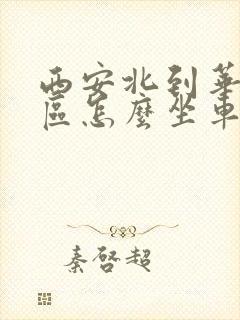 西安北到華
區怎麼坐車
秦啓超